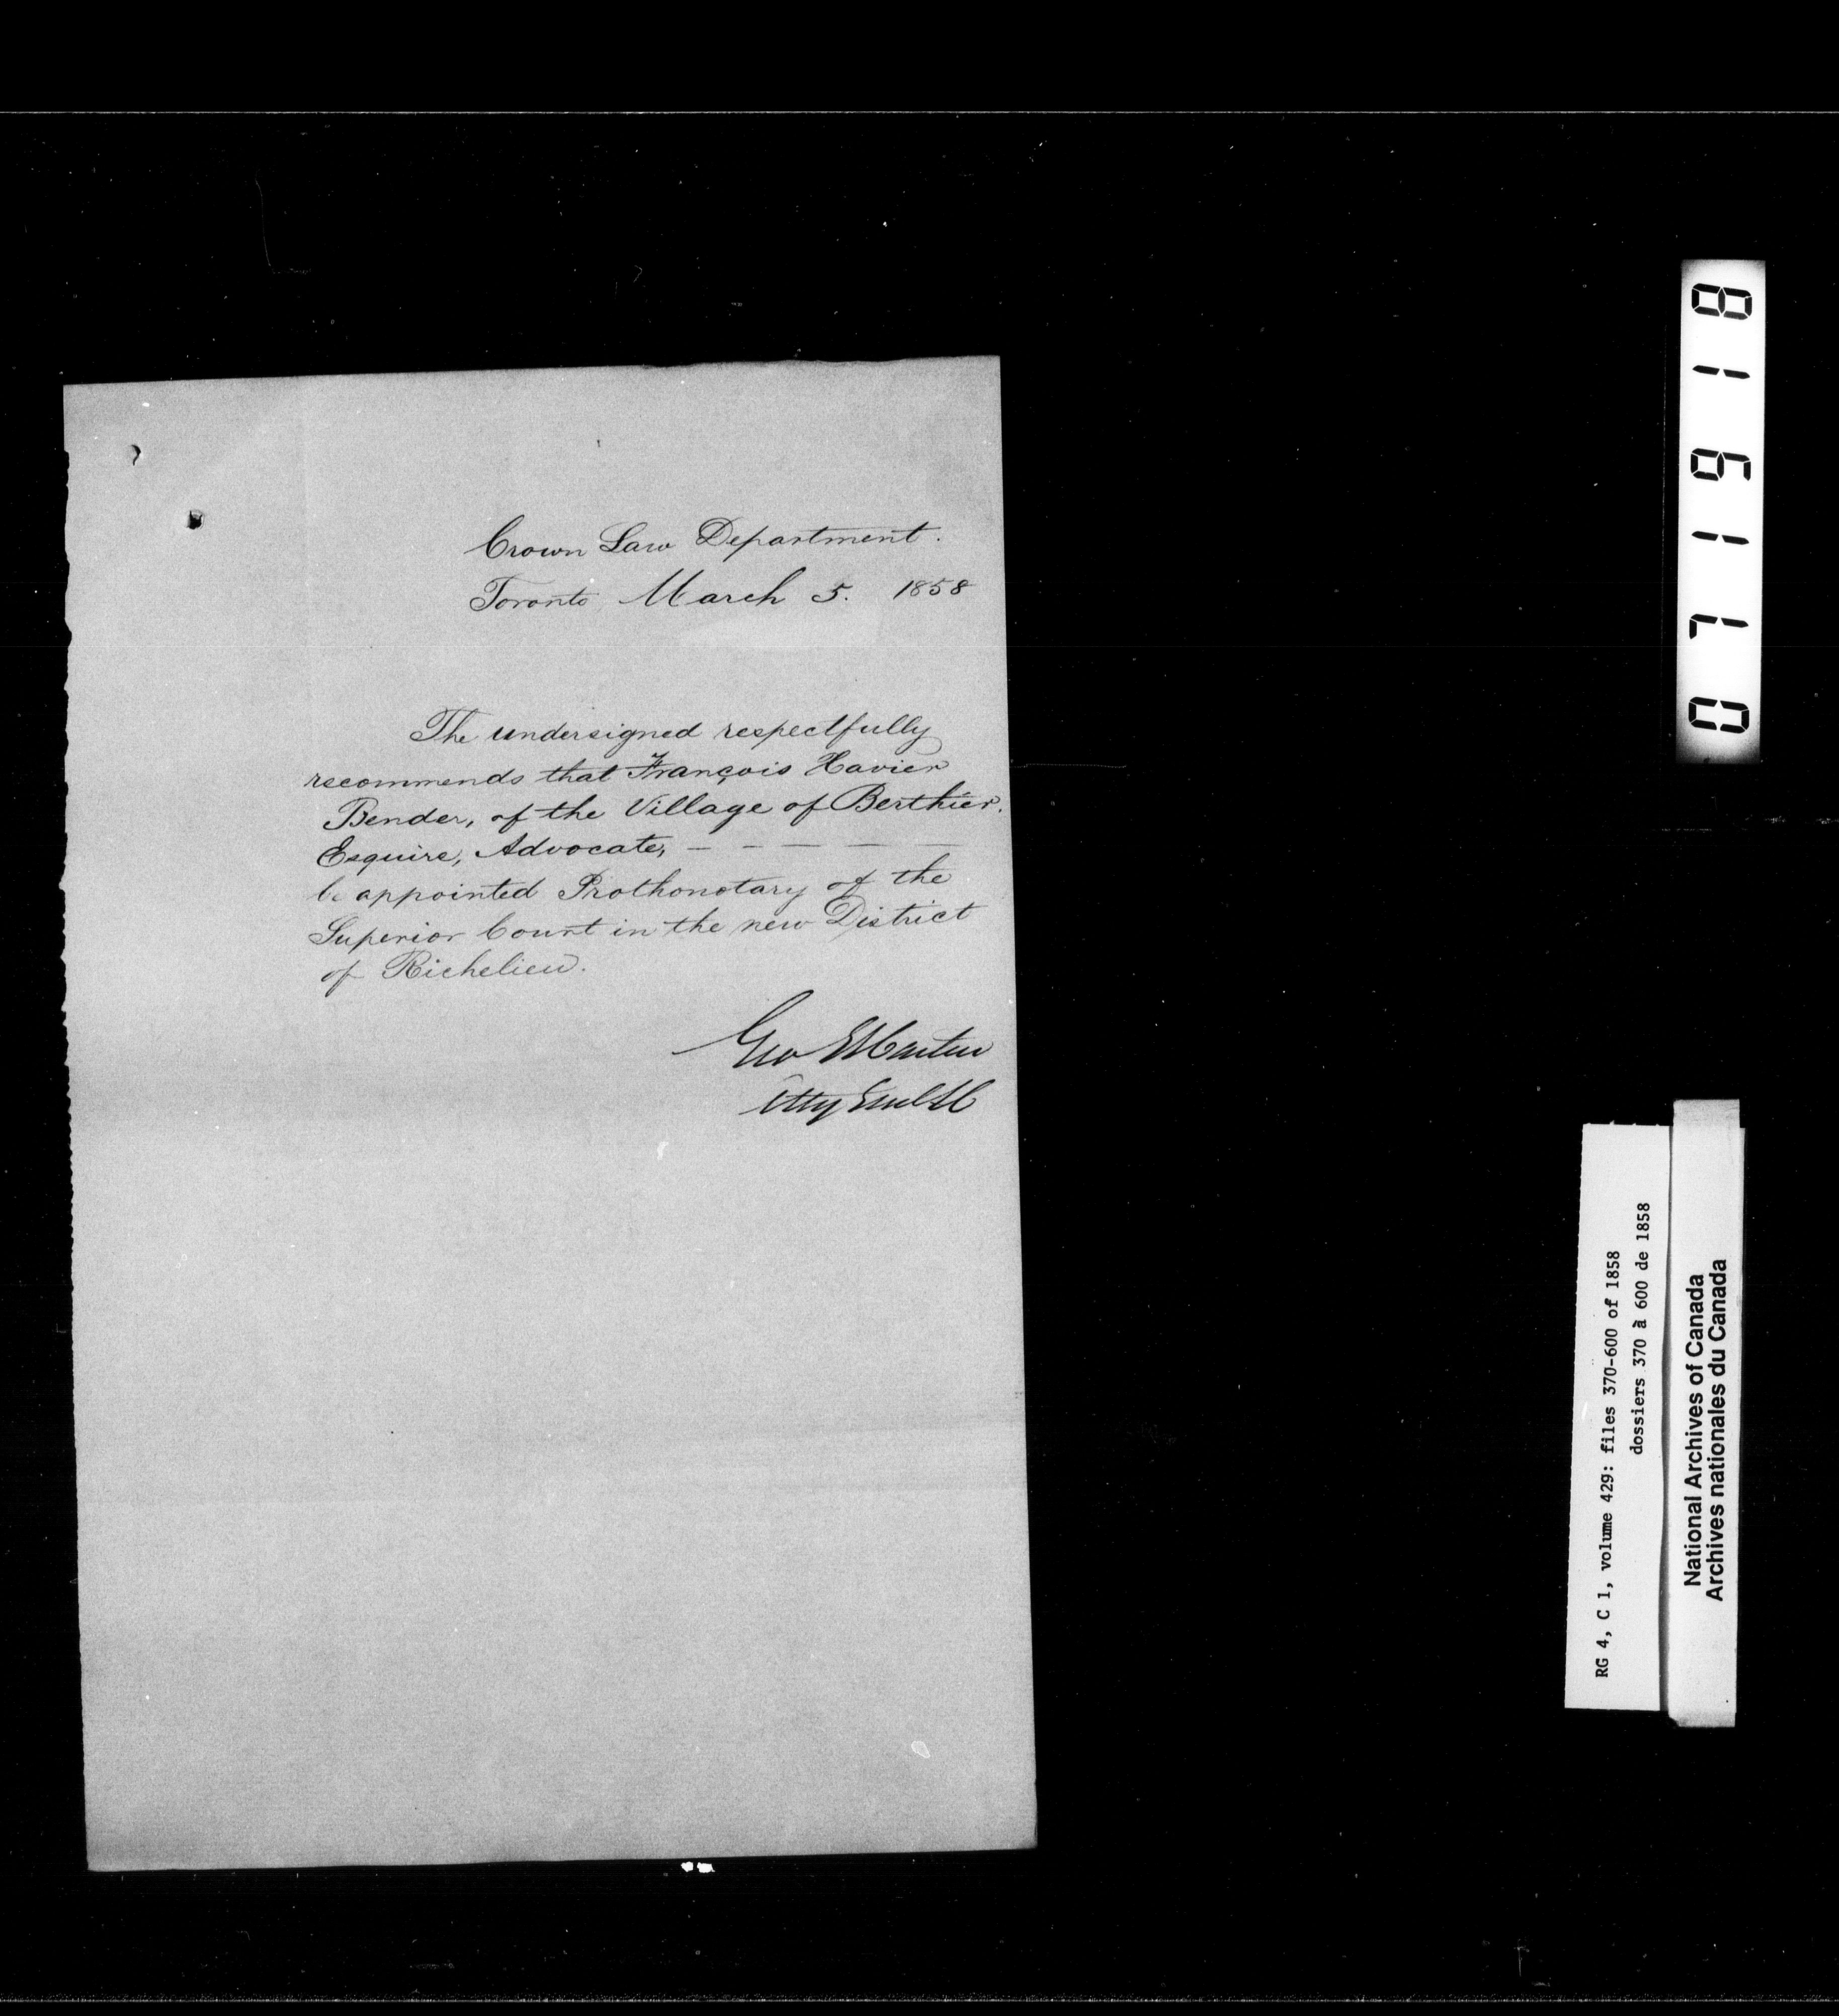 Crown Law Department.
Toronto March 5. 1858
The undersigned respectfully
recommends that François Xavier
Bender, of the Village of Berthier.
Esquire, Advocate, — — — — — —
be appointed Prothonotary of the
Superior Court in the new District
of Richelieu.
Geo E Cartier
Atty Genl LC
071918
RG 4, C 1, volume 429: files 370-600 of 1858
dossiers 370 à 600 de 1858
National Archives of Canada
Archives nationales du Canada